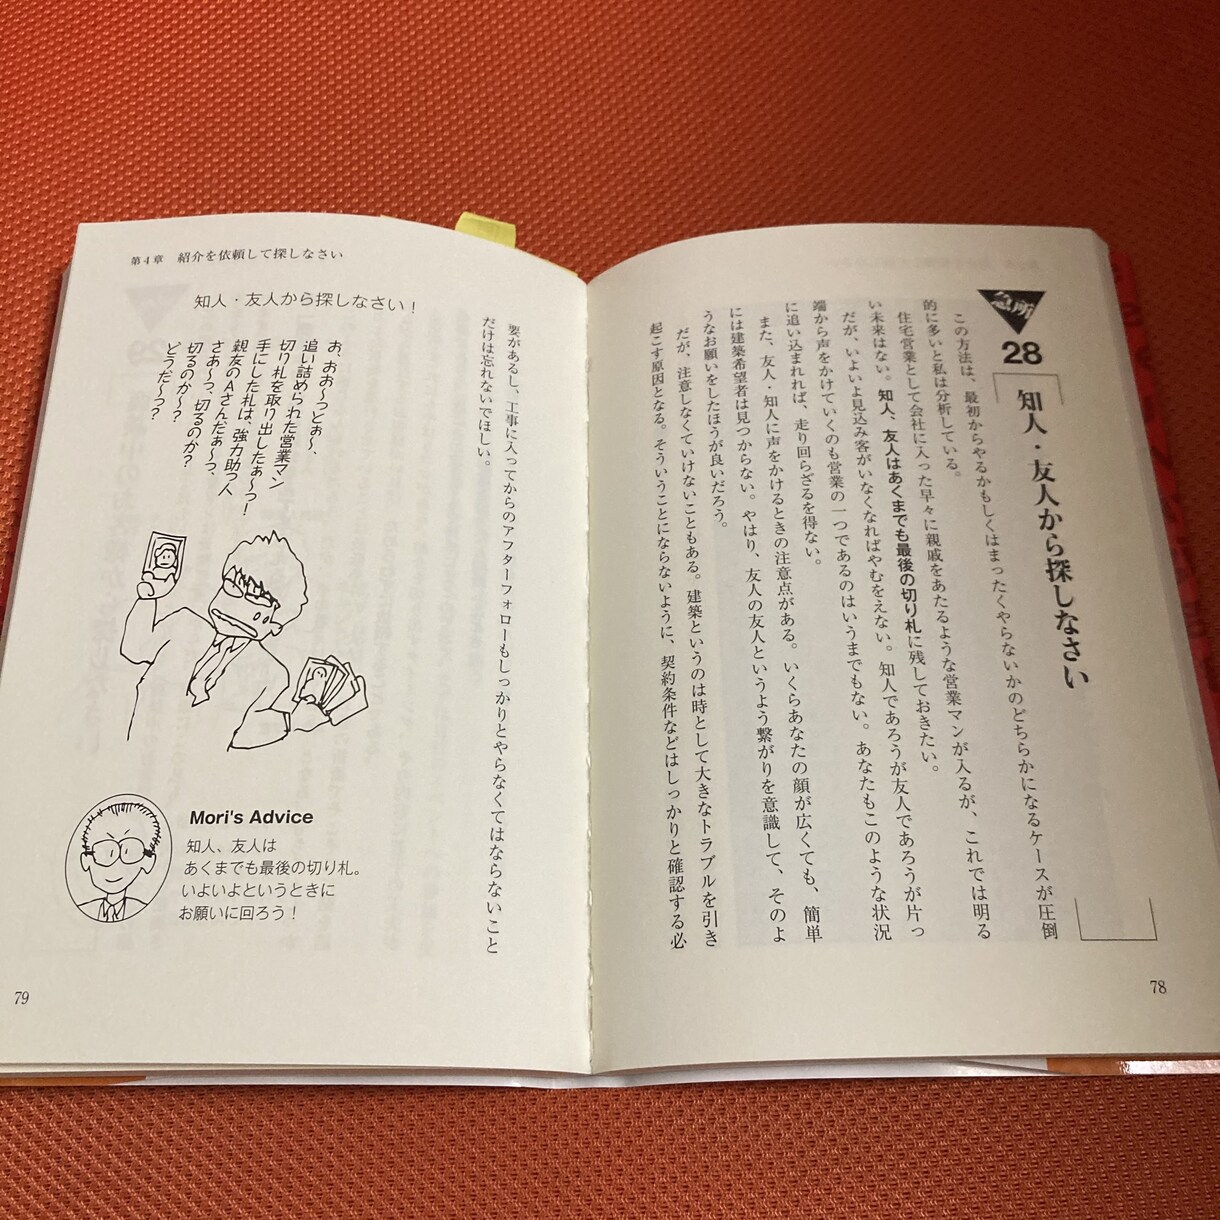 急所
28
知人・友人から探しなさい
この方法は、最初からやるかもしくはまったくやらないかのどちらかになるケースが圧倒
的に多いと私は分析している。
住宅営業として会社に入った早々に親戚をあたるような営業マンが入るが、これでは明る
い未来はない。知人、友人はあくまでも最後の切り札に残しておきたい。
だが、いよいよ見込み客がいなくなればやむをえない。知人であろうが友人であろうが片っ
端から声をかけていくのも営業の一つであるのはいうまでもない。あなたもこのような状況
に追い込まれれば、走り回らざるを得ない。
また、友人・知人に声をかけるときの注意点がある。いくらあなたの顔が広くても、簡単
には建築希望者は見つからない。やはり、友人の友人というよう繋がりを意識して、そのよ
うなお願いをしたほうが良いだろう。
だが、注意しなくていけないこともある。建築というのは時として大きなトラブルを引き
起こす原因となる。そういうことにならないように、契約条件などはしっかりと確認する必
78
第4章 紹介を依頼して探しなさい
要があるし、工事に入ってからのアフターフォローもしっかりとやらなくてはならないこと
だけは忘れないでほしい。
知人・友人から探しなさい！
お、おお〜っとぉ〜、
追い詰められた営業マン
切り札を取り出したぁ〜っ！
手にした札は、強力助っ人
親友のAさんだぁ〜っ、
さあ〜っ、切るのか？
切るのか〜？
どうだ〜？
Mori's Advice
知人、友人は
あくまでも最後の切り札。
いよいよというときに
お願いに回ろう！
79